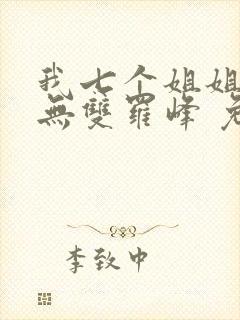 我七个姐姐
無雙羅峰
李致中